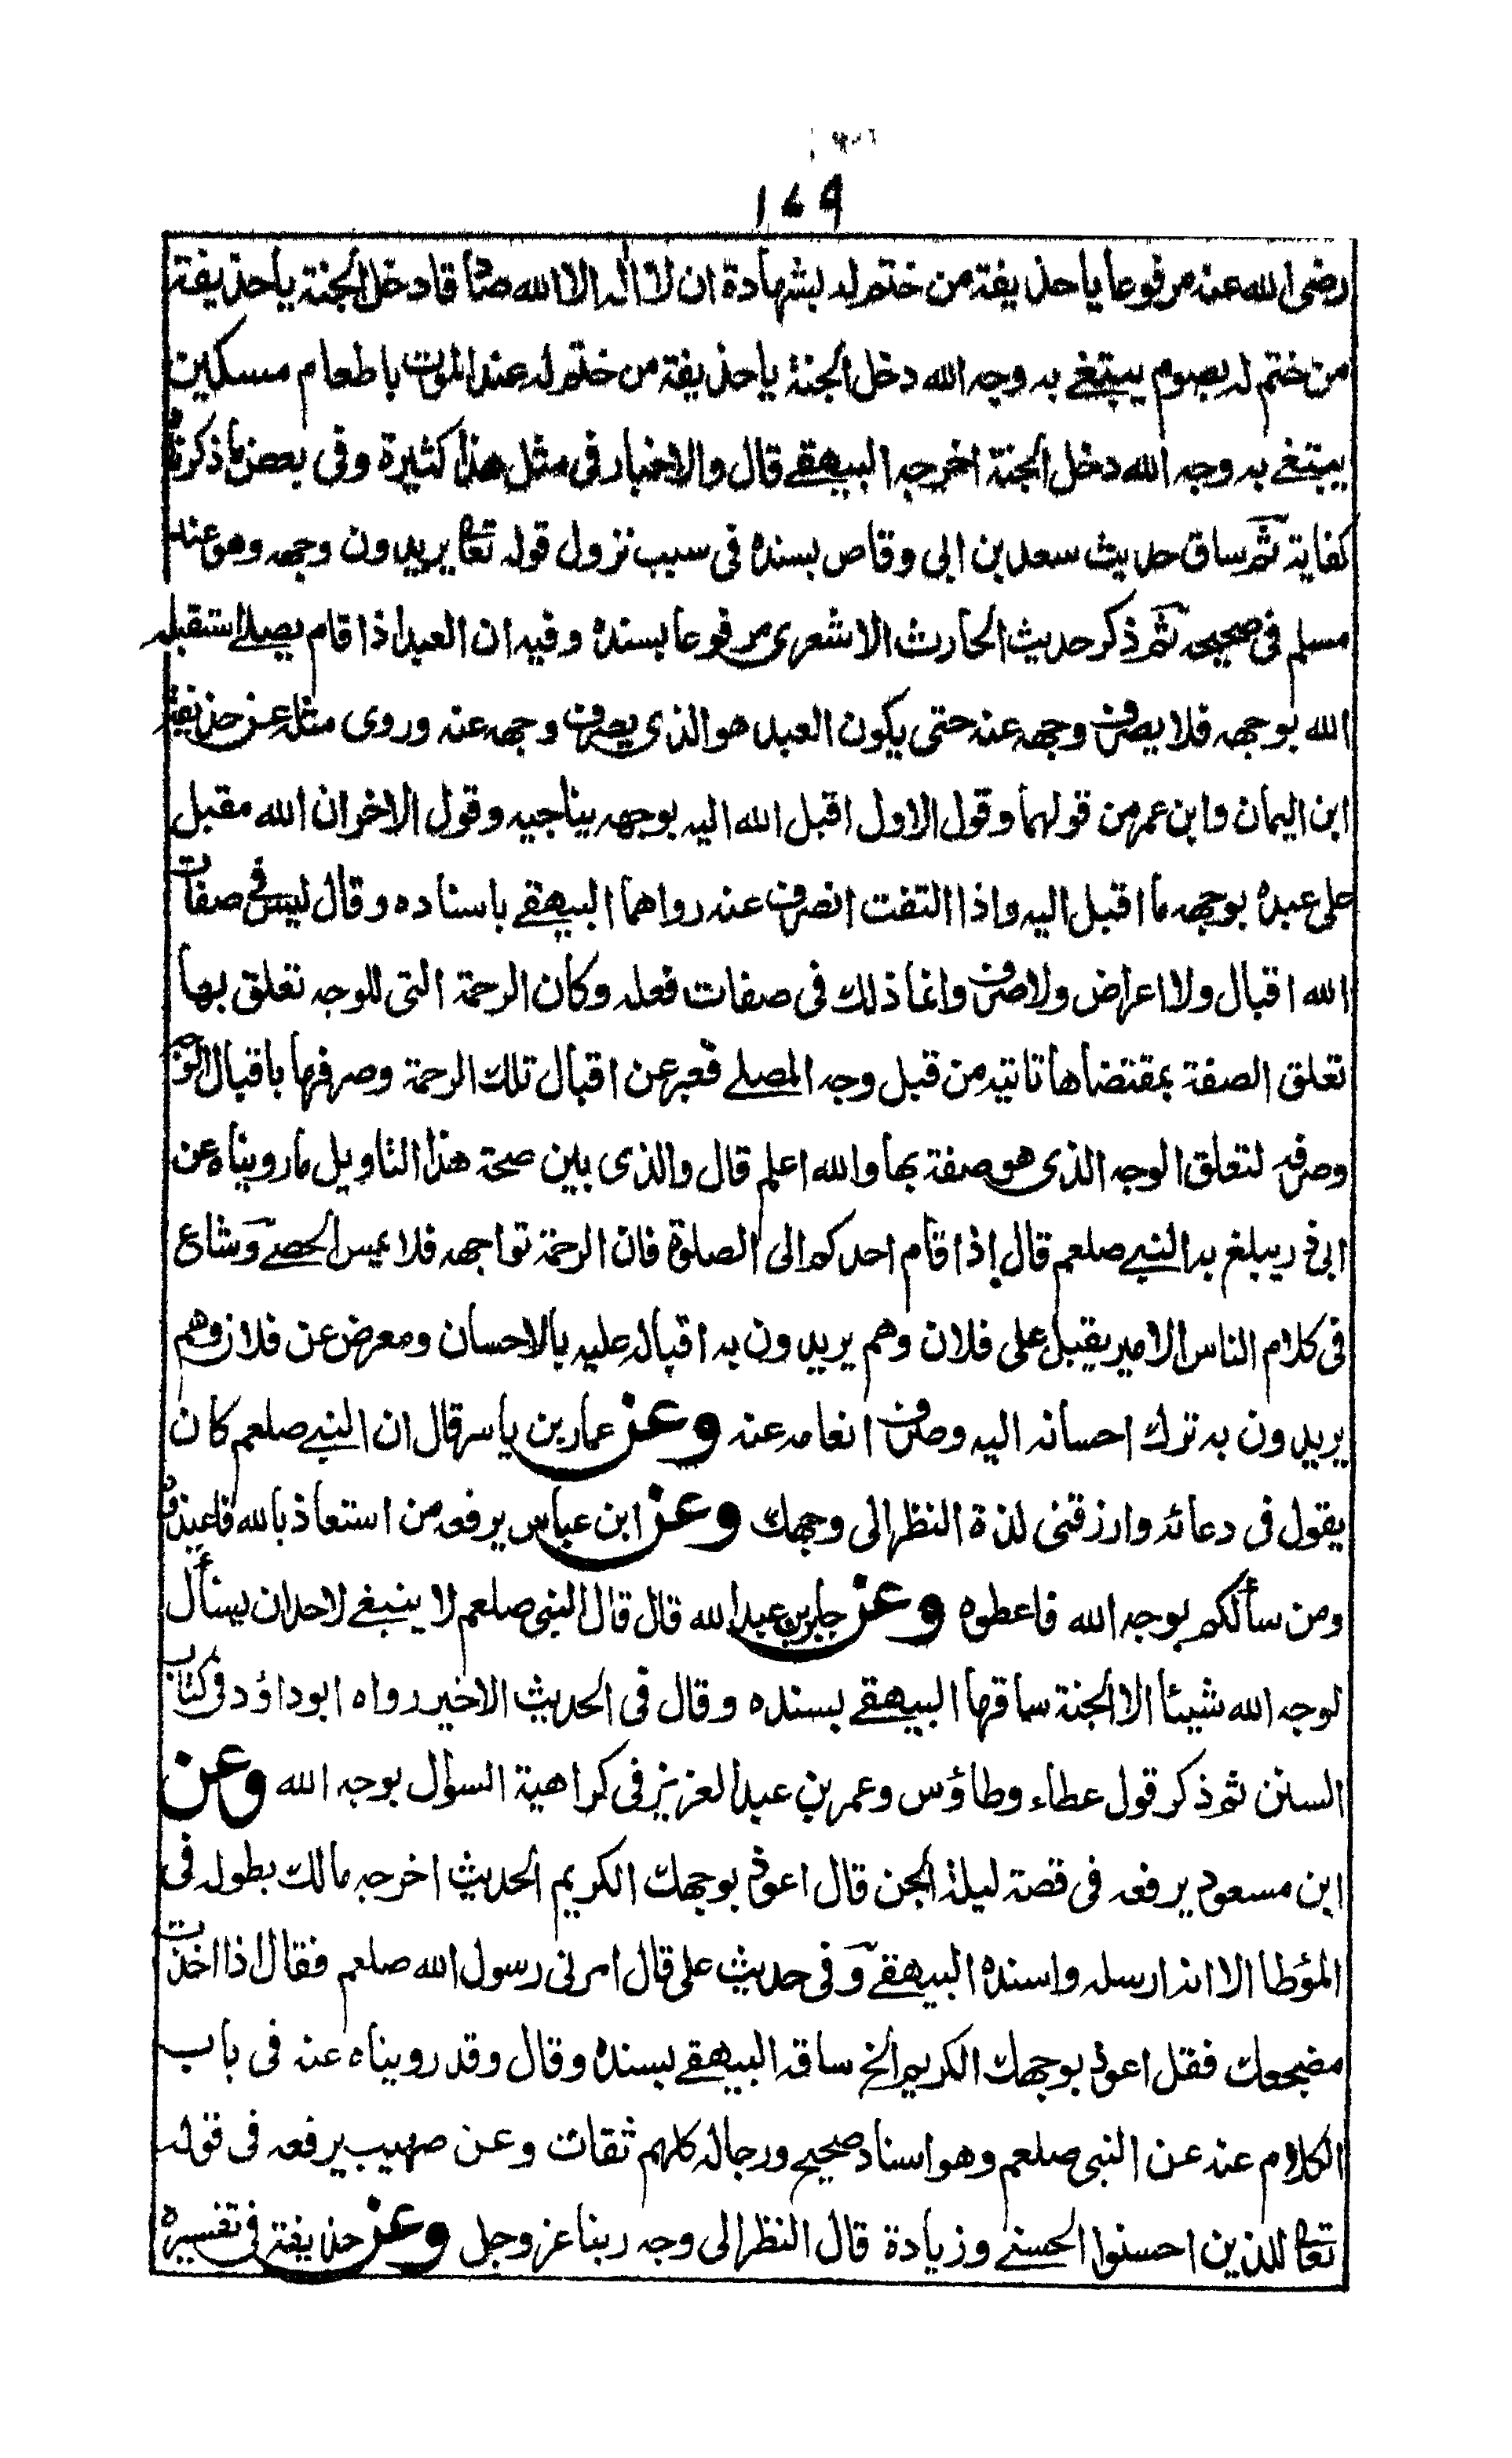 ١٦٩
رضى الله عنه مرفوعا يا حذيفة من ختم له بشهادة ان لا اله الا الله صادقا دخل الجنة يا حذيفة
من ختم له بصوم يبتغى به وجه الله دخل الجنة يا حذيفة من ختم له عند الموت باطعام مسكين
يبتغى به وجه الله دخل الجنة اخرجه البيهقى قال والاخبار فى مثل هذا كثيرة وفى بعض ما ذكرنا
كفاية ثم ساق حديث سعد بن ابى وقاص بسنده فى سبب نزول قوله تعا يريدون وجهه وهو عند
مسلم فى صحيحه ثم ذكر حديث الحارث الاشعرى مرفوعا بسنده وفيه ان العبد اذا قام يصلى استقبله
الله بوجهه فلا يصرف وجهه عنه حتى يكون العبد هو الذى يصرف وجهه عنه وروى مثله عن حذيفة
ابن اليمان وابن عمر من قولهما وقول الاول اقبل الله اليه بوجهه يناجيه وقول الاخر ان الله مقبل
على عبده بوجهه ما اقبل اليه واذا التفت انصرف عنه رواهما البيهقى باسناده وقال ليس فى صفات
الله اقبال ولا اعراض ولا صرف وانما ذلك فى صفات فعله وكان الرحمة التى للوجه تعلق بها
تعلق الصفة بمقتضاها تاتيه من قبل وجه المصلى فعبر عن اقبال تلك الرحمة وصرفها باقبال الوجه
وصرفه لتعلق الوجه الذى هو صفة بها والله اعلم قال والذى يبين صحة هذا التاويل ما رويناه عن
ابى ذر يبلغ به النبى صلعم قال إذا قام احدكم الى الصلوة فان الرحمة تواجهه فلا يمس الحصى وشاع
فى كلام الناس الامير يقبل على فلان وهم يريدون به اقباله عليه بالاحسان ومعرض عن فلان وهم
يريدون به ترك احسانه اليه وصرف انعامه عنه وعن عمار بن ياسر قال ان النبى صلعم كان
يقول فى دعائه وارزقنى لذة النظر الى وجهك وعن ابن عباس يرفعه من استعاذ بالله فاعيذوه
ومن سألكم بوجه الله فاعطوه وعن جابر بن عبد الله قال قال النبى صلعم لا ينبغى لاحد ان يسأل
لوجه الله شيئا الا الجنة ساقها البيهقى بسنده وقال فى الحديث الاخير رواه ابو داؤد فى كتاب
السنن ثم ذكر قول عطاء وطاؤس وعمر بن عبد العزيز فى كراهية السؤال بوجه الله وعن
ابن مسعود يرفعه فى قصة ليلة الجن قال اعوذ بوجهك الكريم الحديث اخرجه مالك بطوله فى
المؤطا الا انه ارسله واسنده البيهقى وفى حديث على قال امرنى رسول الله صلعم فقال اذا اخذت
مضجعك فقل اعوذ بوجهك الكريم الخ ساقه البيهقى بسنده وقال وقد رويناه عنه فى باب
الكلام عنه عن النبى صلعم وهو اسناد صحيح ورجاله كلهم ثقات وعن صهيب يرفعه فى قوله
تعا للذين احسنوا الحسنى وزيادة قال النظر الى وجه ربنا عز وجل وعن حذيفة فى تفسيره